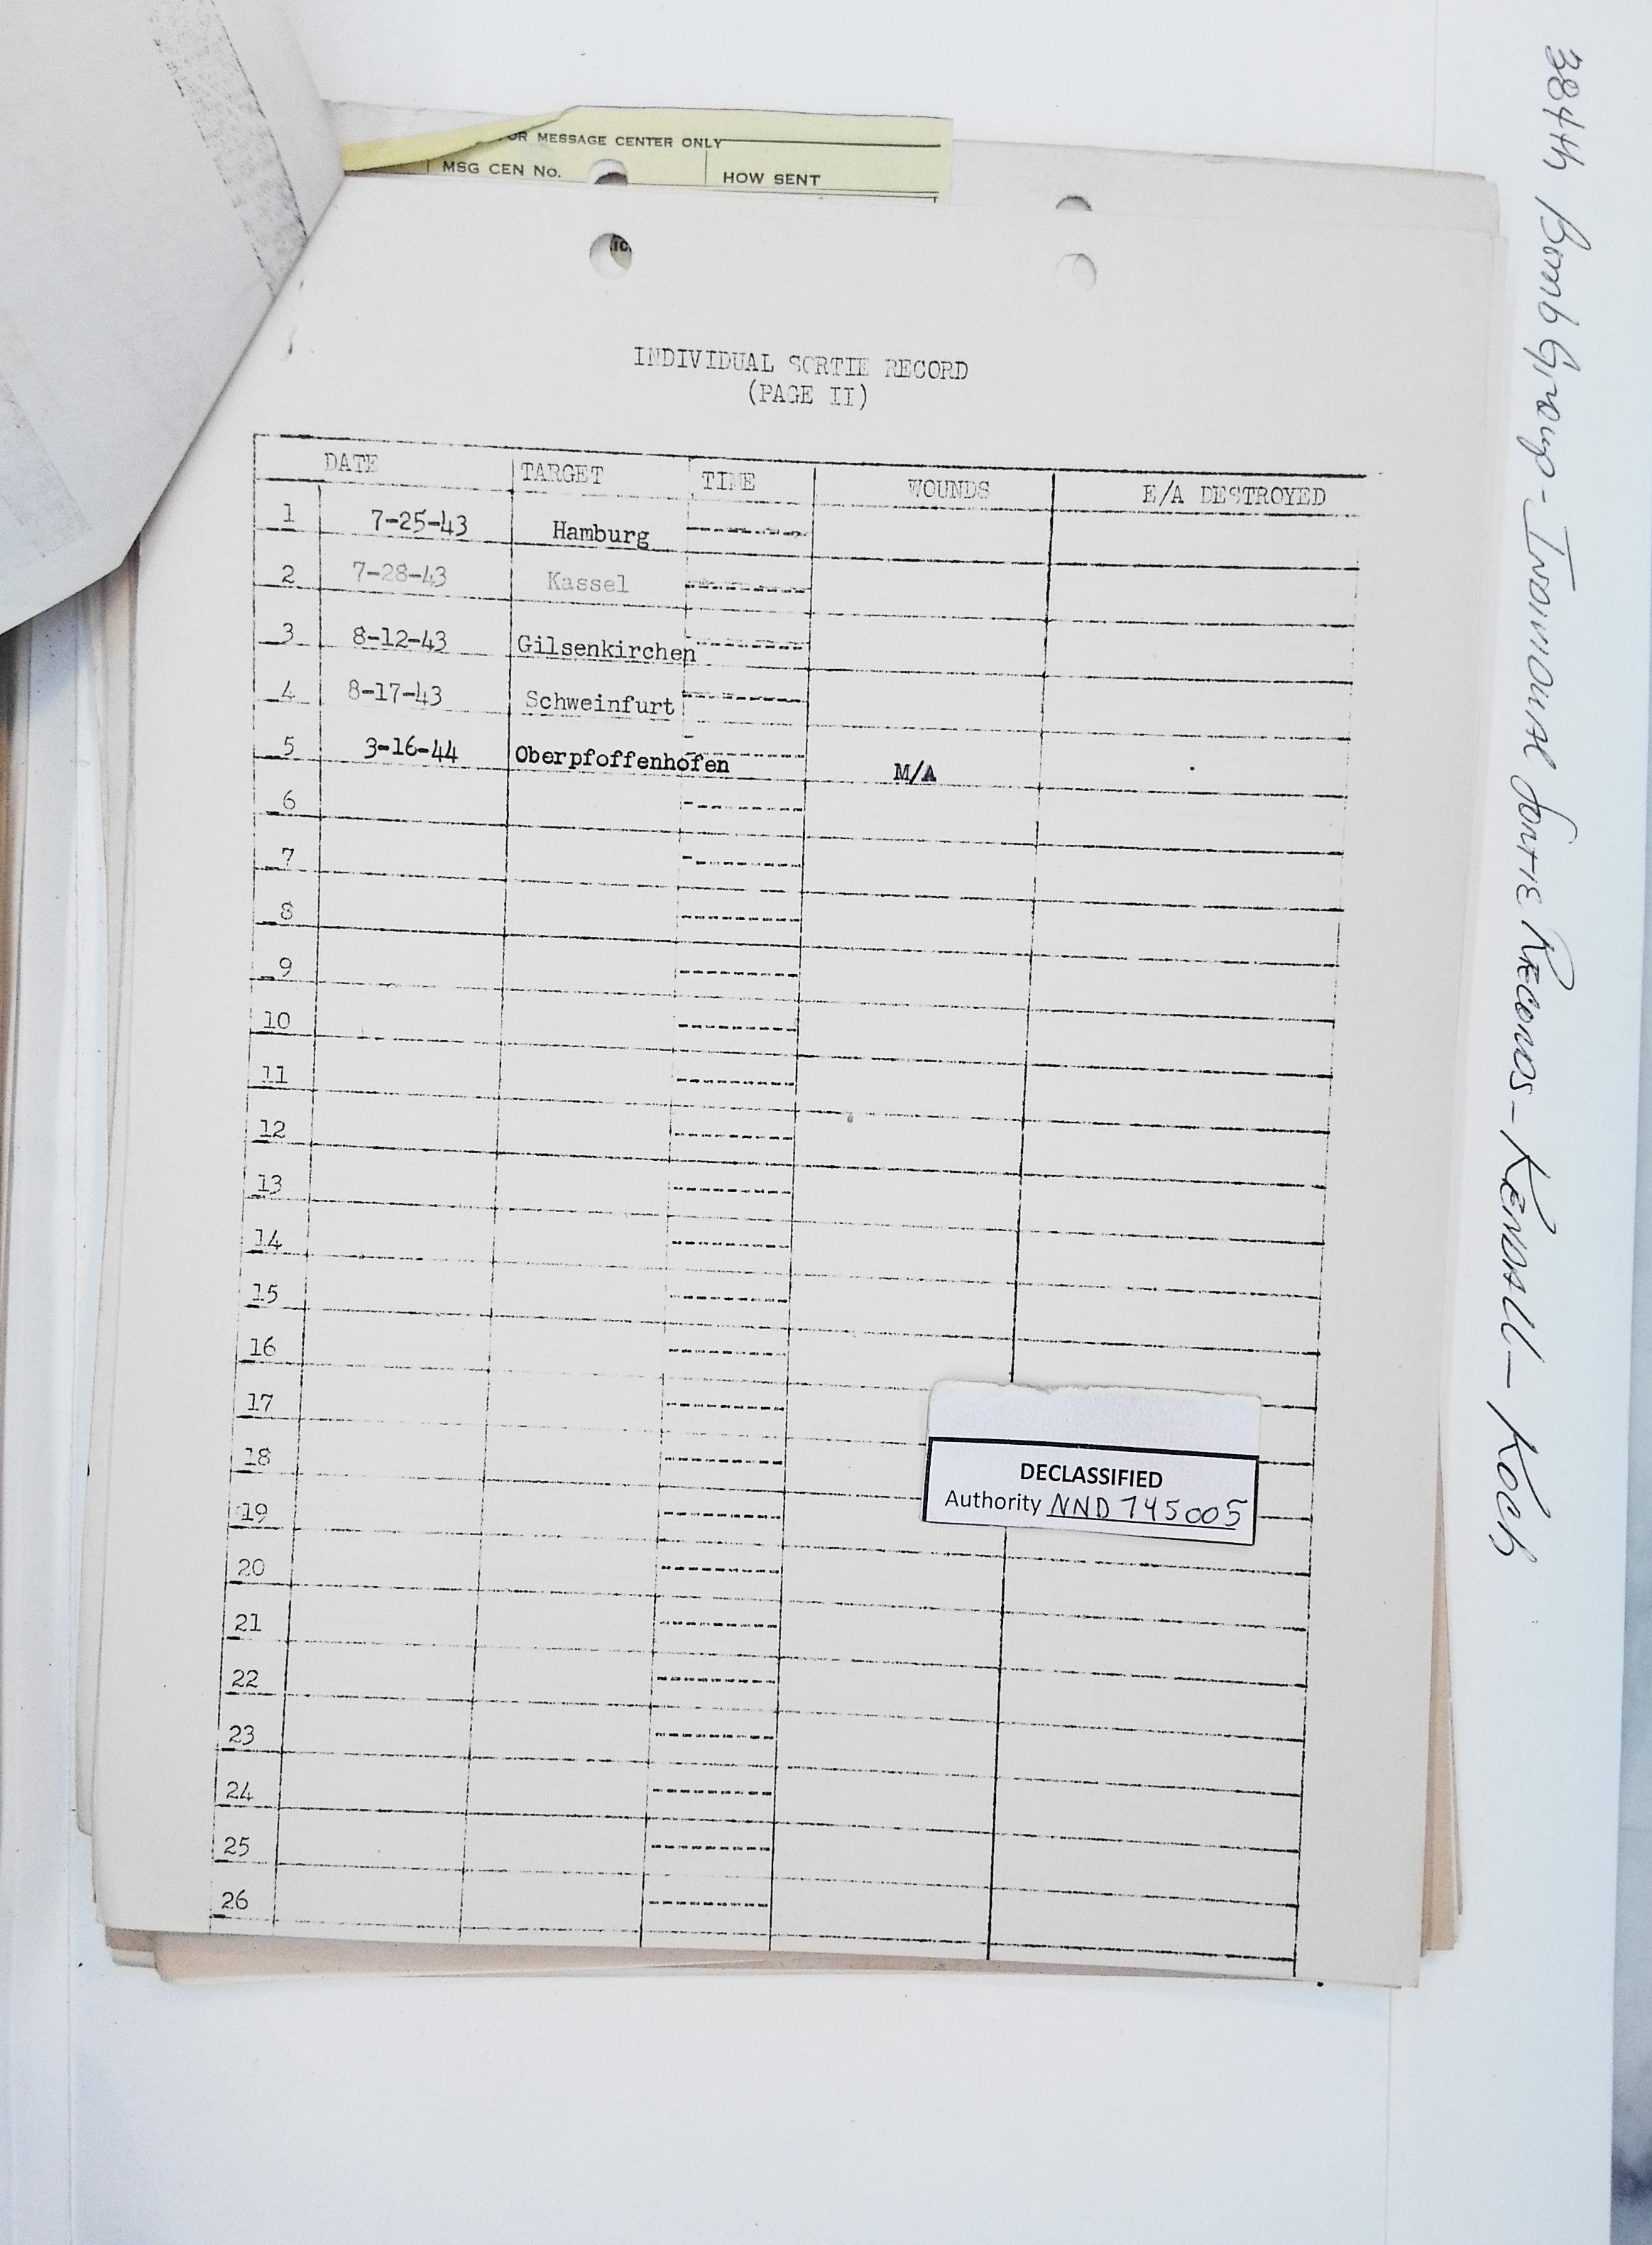 OR MESSAGE CENTER ONLY
MSG CEN No. HOW SENT
INDIVIDUAL SORTIE RECORD
(PAGE II)
DATE TARGET TIME WOUNDS E/A DESTROYED
1 7-25-43 Hamburg
2 7-28-43 Kassel
3 8-12-43 Gilsenkirchen
4 8-17-43 Schweinfurt
5 3-16-44 Oberpfoffenhofen M/A
6
7
8
9
10
11
12
13
14
15
16
17
18
19
20
21
22
23
24
25
26
DECLASSIFIED
Authority NND 745005
384th Bomb Group - Individual Sortie Records - Kendall - Koch